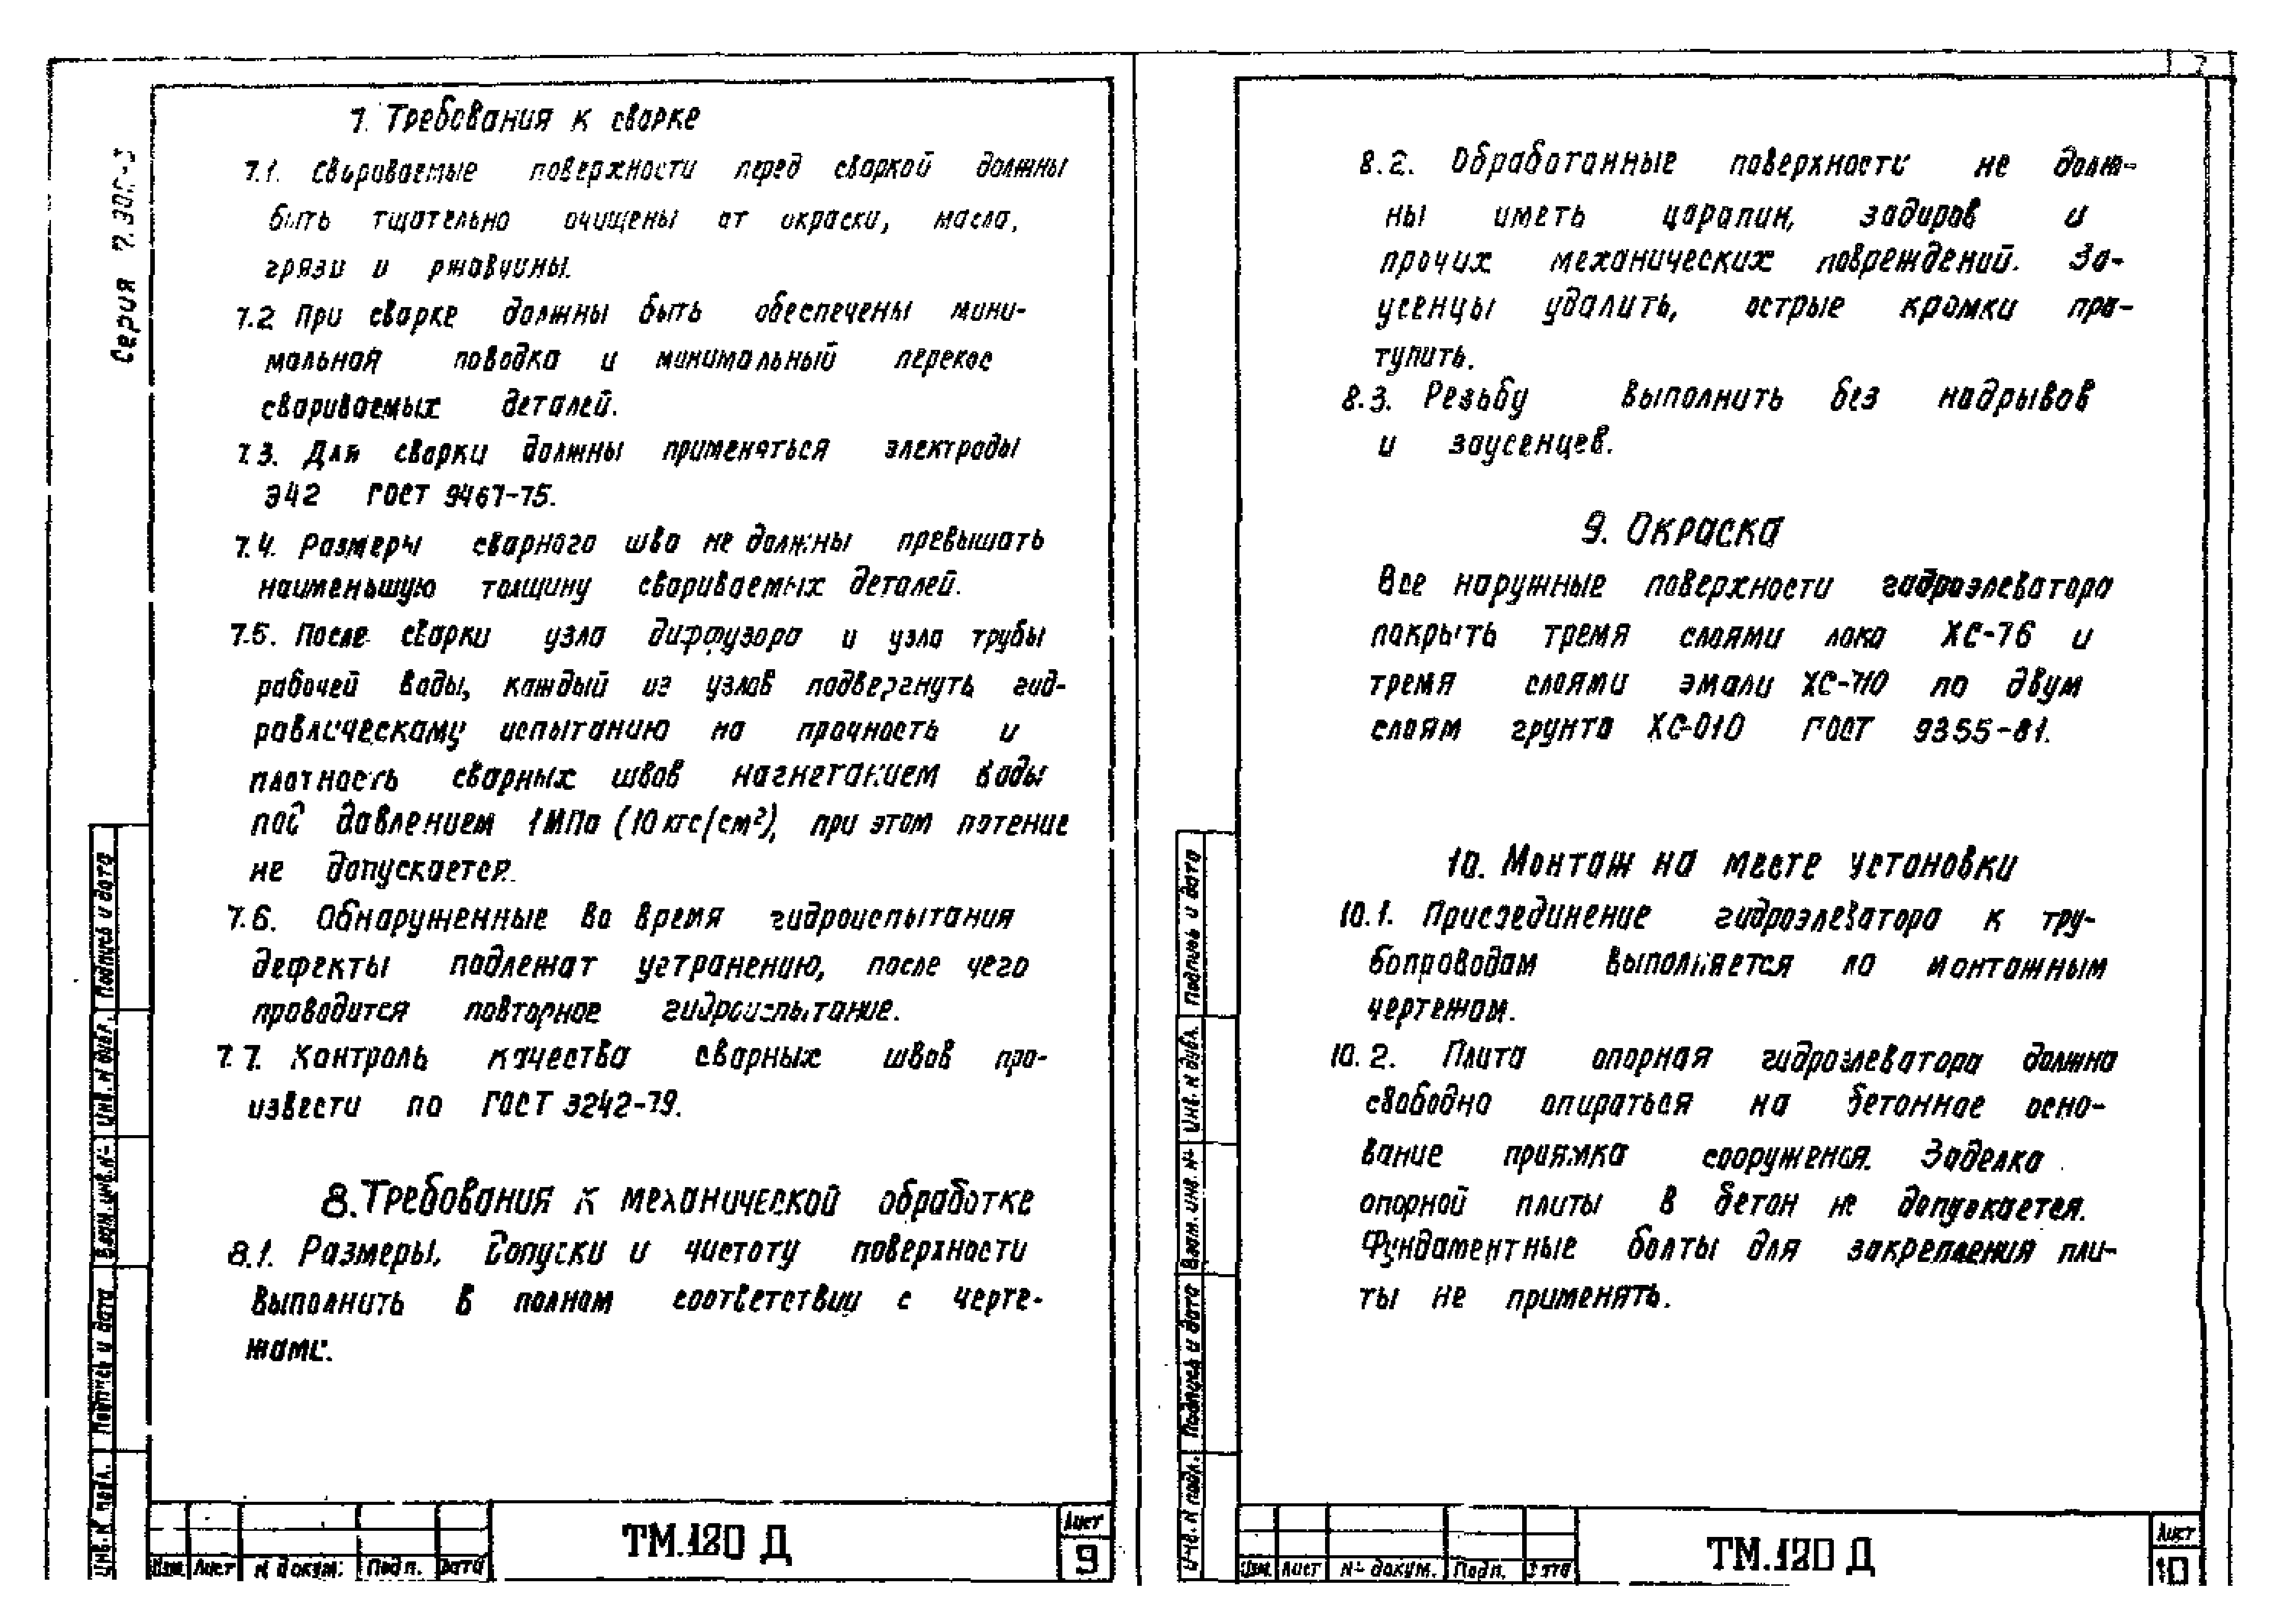 Серия 7.30
7. Требования к сварке
7.1. Свариваемые поверхности перед сваркой должны
быть тщательно очищены от окраски, масла,
грязи и ржавчины.
7.2 При сварке должны быть обеспечены мини-
мальная поводка и минимальный перекос
свариваемых деталей.
7.3. Для сварки должны применяться электроды
Э42 ГОСТ 9467-75.
7.4. Размеры сварного шва не должны превышать
наименьшую толщину свариваемых деталей.
7.5. После сварки узла диффузора и узла трубы
рабочей воды, каждый из узлов подвергнуть гид-
равлическому испытанию на прочность и
плотность сварных швов нагнетанием воды
под давлением 1МПа (10 кгс/см²), при этом потение
не допускается.
7.6. Обнаруженные во время гидроиспытания
дефекты подлежат устранению, после чего
проводится повторное гидроиспытание.
7.7. Контроль качества сварных швов про-
извести по ГОСТ 3242-79.
8. Требования к механической обработке
8.1. Размеры, допуски и чистоту поверхности
выполнить в полном соответствии с черте-
жами.
Инв. N подл. Подпись и дата Взам. инв. N Инв. N дубл. Подпись и дата
Изм. Лист N докум. Подп. Дата
ТМ.120 Д
Лист
9
8.2. Обработанные поверхности не долж-
ны иметь царапин, задиров и
прочих механических повреждений. За-
усенцы удалить, острые кромки при-
тупить.
8.3. Резьбу выполнить без надрывов
и заусенцев.
9. Окраска
Все наружные поверхности гидроэлеватора
покрыть тремя слоями лака ХС-76 и
тремя слоями эмали ХС-710 по двум
слоям грунта ХС-010 ГОСТ 9355-81.
10. Монтаж на месте установки
10.1. Присоединение гидроэлеватора к тру-
бопроводам выполняется по монтажным
чертежам.
10.2. Плита опорная гидроэлеватора должна
свободно опираться на бетонное осно-
вание приямка сооружения. Заделка
опорной плиты в бетон не допускается.
Фундаментные болты для закрепления пли-
ты не применять.
Инв. N подл. Подпись и дата Взам. инв. N Инв. N дубл. Подпись и дата
Изм. Лист N докум. Подп. Дата
ТМ.120 Д
Лист
10